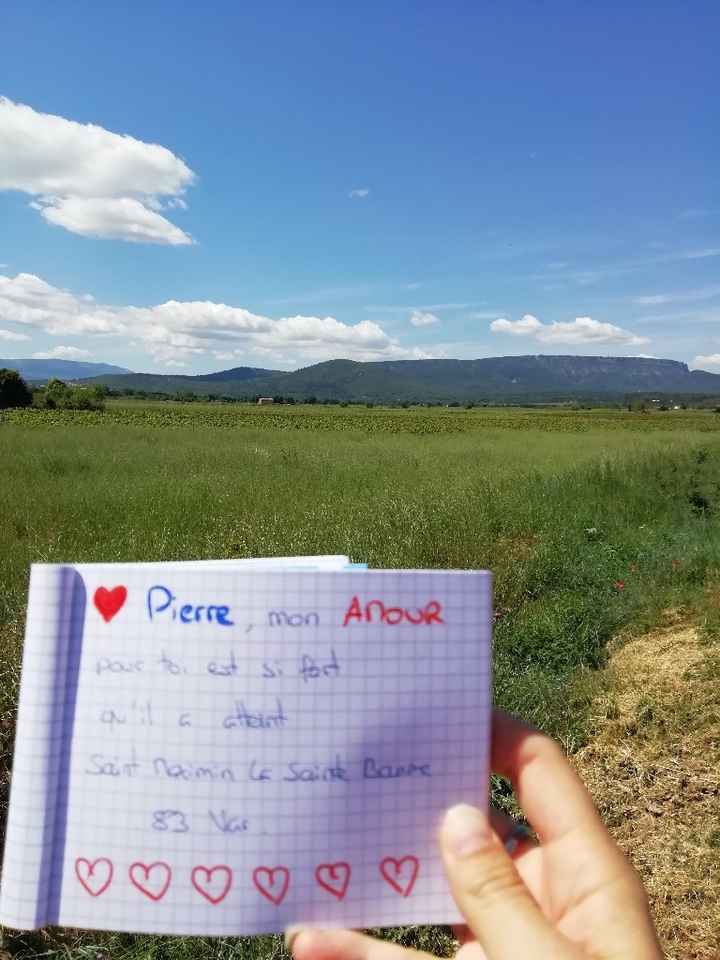 Pierre, mon AMOUR
pour toi est si fort
qu'il a atteint
Saint Maximin La Sainte Baume
83 Var.